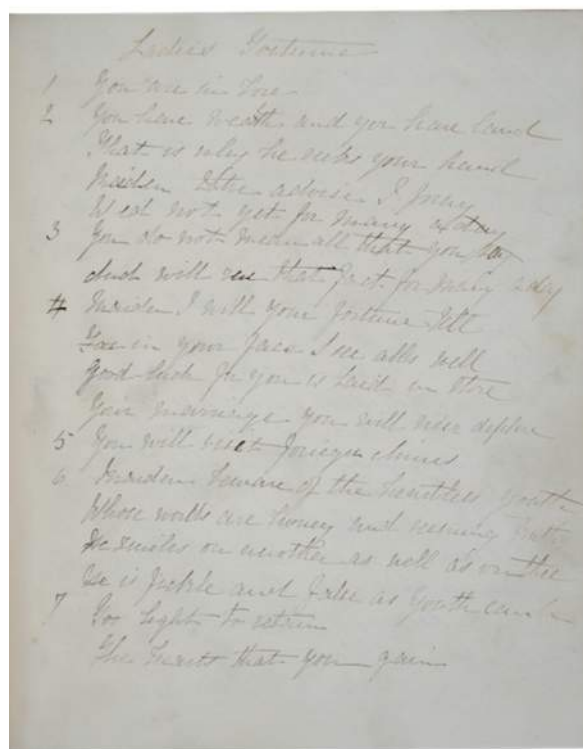 Ladies Fortune
1 You are in love
2 You have wealth and you have land
That is why he seeks your hand
Maiden the advise I pray
Wed not yet for many a day
3 You do not mean all that you say
And will rue that fact for many a day
4 Maiden I will your fortune tell
For in your face I see alls well
Good luck for you is laid in store
Your marriage you will neer deplore
5 You will visit foriegn climes
6 Maiden beware of the heartless youth
Whose words are honey and seeming truth
He smiles on another as well as on thee
He is fickle and false as youth can be
7 Too light to retain
The heart that you gain